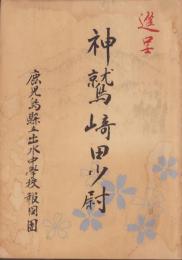 進呈
神鷲崎田少尉
鹿児島縣立出水中學校報国団